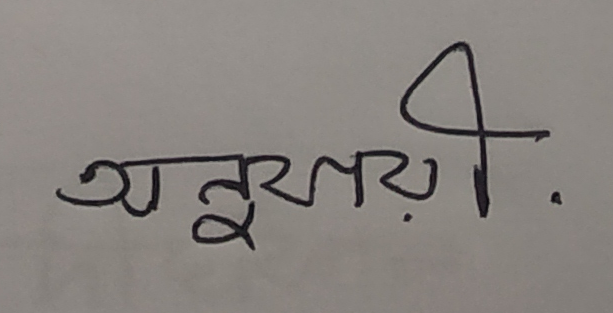 অনুযায়ী.